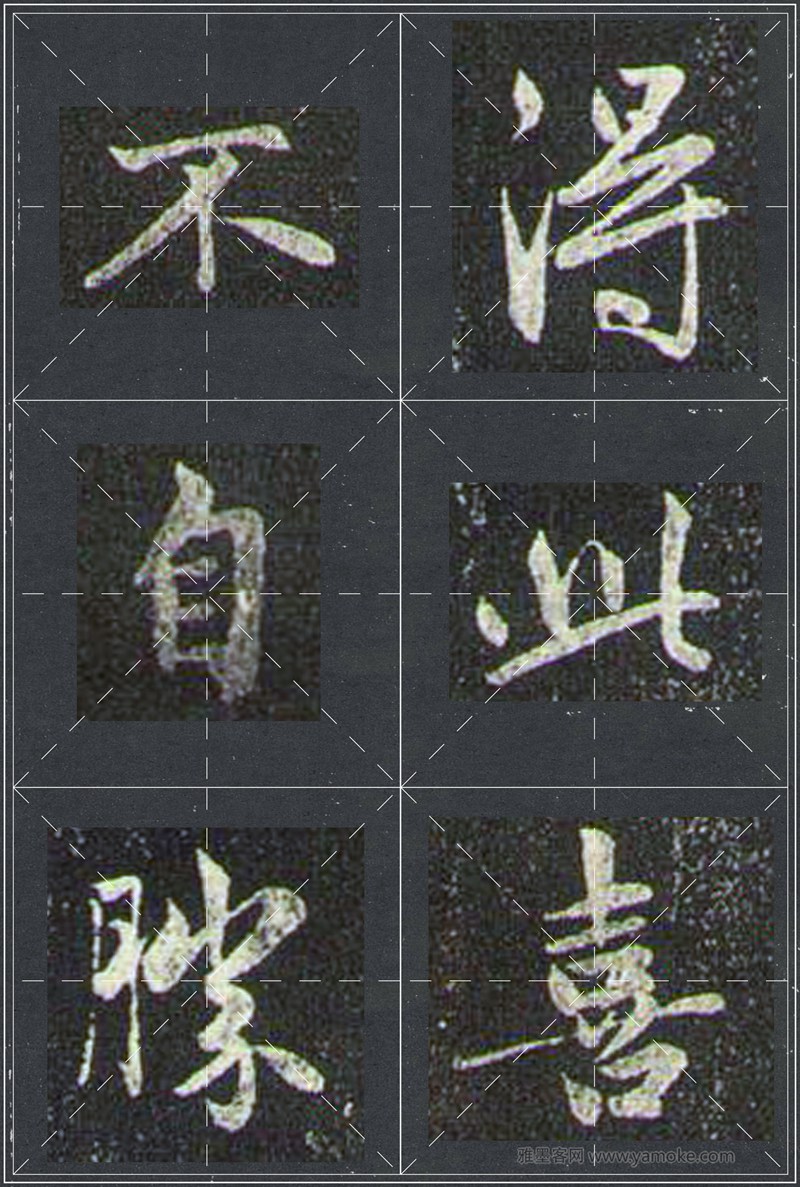 得此喜
不自勝
雅墨客网 www.yamoke.com